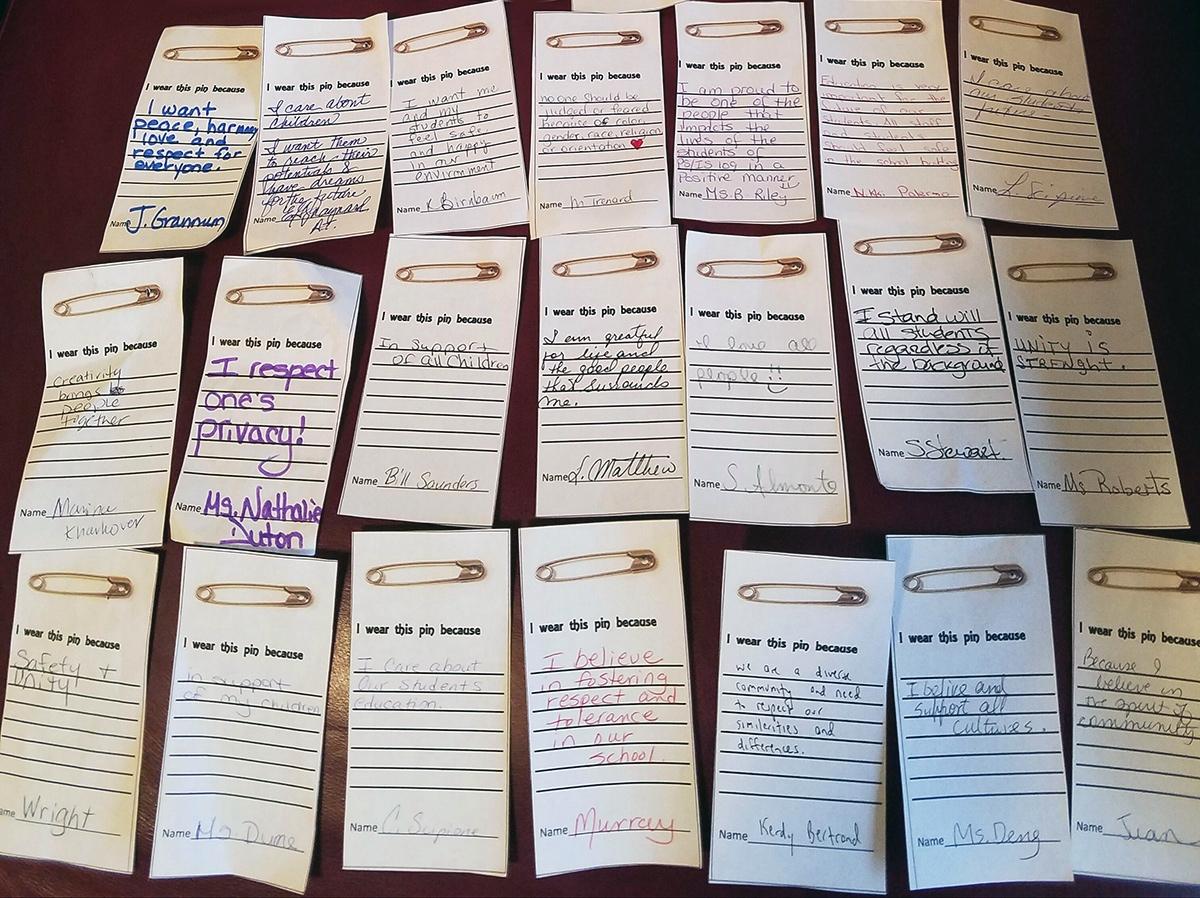 I wear this pin because
I want
peace, harmony
love and
respect for
everyone.
Name J. Grannum
I wear this pin because
I care about
children
I want them
to reach their
potentials &
have dreams
for the future
Name
I wear this pin because
I want me
and my
students to
feel safe
and happy
in our
envirnment
Name K Birnbaum
I wear this pin because
no one should be
judged or feared
because of color,
gender, race, religion
or orientation ♥
Name M Trenard
I wear this pin because
I am proud to
be one of the
people that
impacts the
lives of the
students of
PS/IS 109 in a
positive manner
Name Ms. B Riley
I wear this pin because
Education is very
important for the
future of our
students. All staff
and students
should feel safe
in the school building
Name Nikki Palermo
I wear this pin because
Name
I wear this pin because
Creativity
brings
people
together
Name Marina
Kharkover
I wear this pin because
I respect
one's
privacy!
Name Ms. Nathalie
Duton
I wear this pin because
In support
of all children
Name Bill Saunders
I wear this pin because
I am greatful
for life and
the good people
that surrounds
me.
Name L. Matthew
I wear this pin because
I love all
people
Name S. Almonte
I wear this pin because
I stand will
all students
regardless if
the background
Name S Stewart
I wear this pin because
UNITY is
STRENGHT.
Name Ms Roberts
I wear this pin because
Safety +
Unity
ame Wright
I wear this pin because
in support
of my children
Name Ms Dume
I wear this pin because
I care about
Our Students
education.
Name C.
I wear this pin because
I believe
in fostering
respect and
tolerance
in our
school.
Name Murray
I wear this pin because
we are a diverse
community and need
to respect our
similarities and
differences.
Name Kerdy Bertrand
I wear this pin because
I belive and
support all
cultures.
Name Ms. Deng
I wear this pin because
Because I
believe in
the spirit of
community
Name Juan